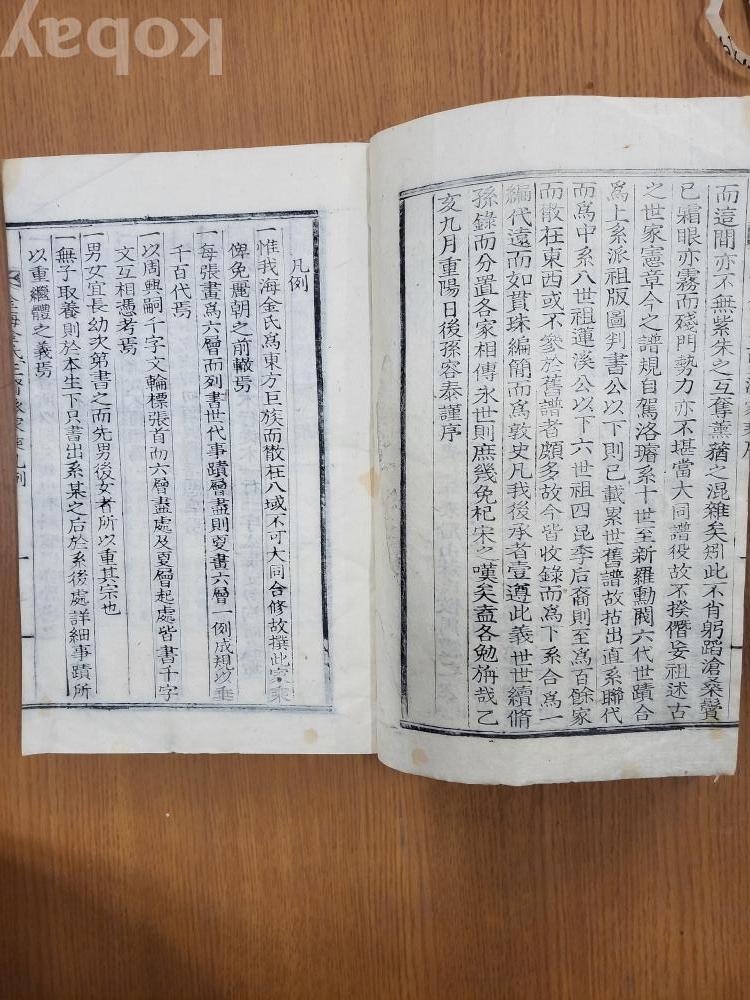 kobay
而這間亦不無紫朱之互奪薰蕕之混雜矣矧此不肖躬蹈滄桑鬢
已霜眼亦霧而殘門勢力亦不堪當大同譜役故不揆僭妄祖述古
之世家憲章今之譜規自駕洛璿系十世至新羅勳閥六代世蹟合
爲上系派祖版圖判書公以下則已載累世舊譜故拈出直系聯代
而爲中系八世祖蓮溪公以下六世祖四昆季后裔則至爲百餘家
而散在東西或不參於舊譜者頗多故今皆收錄而爲下系合爲一
編代遠而如貫珠編簡而爲敦史凡我後承者壹遵此義世世續脩
孫錄而分置各家相傳永世則庶幾免杞宋之嘆矣盍各勉旃哉乙
亥九月重陽日後孫容泰謹序
凡例
一惟我海金氏爲東方巨族而散在八域不可大同合修故撰此家乘
俾免麗朝之前轍焉
一每張畫爲六層而列書世代事蹟層盡則更畫六層一例成規以垂
千百代焉
一以周興嗣千字文輪標張首而六層盡處及更層起處皆書千字
文互相憑考焉
一男女宜長幼次第書之而先男後女者所以重其宗也
一無子取養則於本生下只書出系某之后於系後處詳細事蹟所
以重繼體之義焉